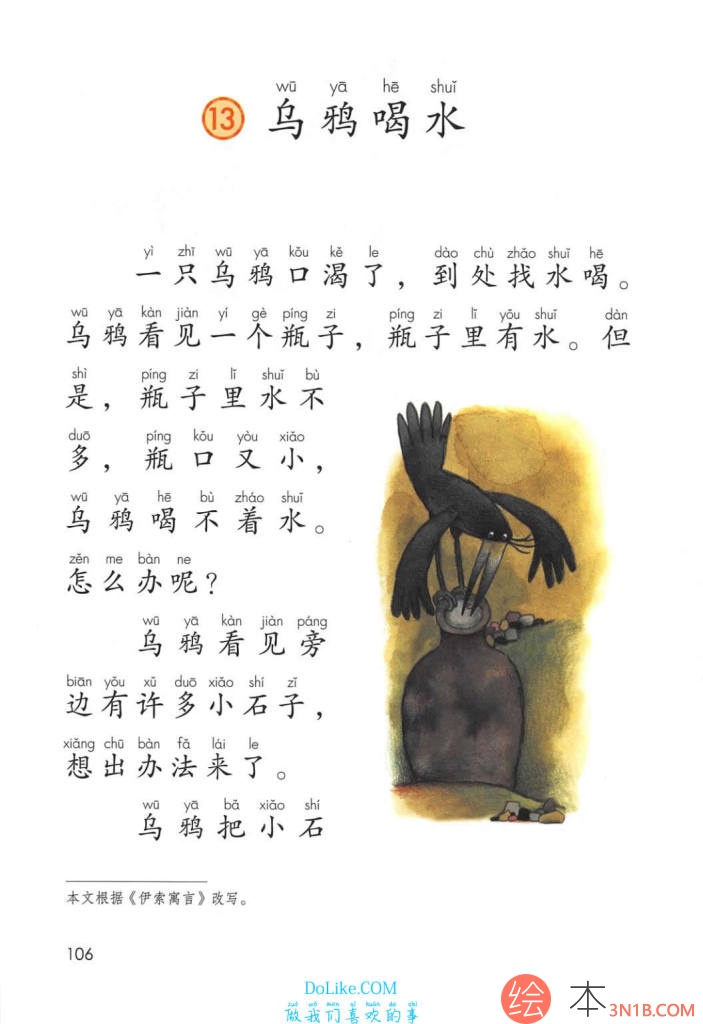 wū yā hē shuǐ
13 乌鸦喝水
yì zhī wū yā kǒu kě le dào chù zhǎo shuǐ hē
一只乌鸦口渴了，到处找水喝。
wū yā kàn jiàn yí gè píng zi píng zi lǐ yǒu shuǐ dàn
乌鸦看见一个瓶子，瓶子里有水。但
shì píng zi lǐ shuǐ bù
是，瓶子里水不
duō píng kǒu yòu xiǎo
多，瓶口又小，
wū yā hē bù zháo shuǐ
乌鸦喝不着水。
zěn me bàn ne
怎么办呢？
wū yā kàn jiàn páng
乌鸦看见旁
biān yǒu xǔ duō xiǎo shí zǐ
边有许多小石子，
xiǎng chū bàn fǎ lái le
想出办法来了。
wū yā bǎ xiǎo shí
乌鸦把小石
本文根据《伊索寓言》改写。
106
DoLike.COM
zuò wǒ men xǐ huān de shì
做我们喜欢的事
绘本 3N1B.COM